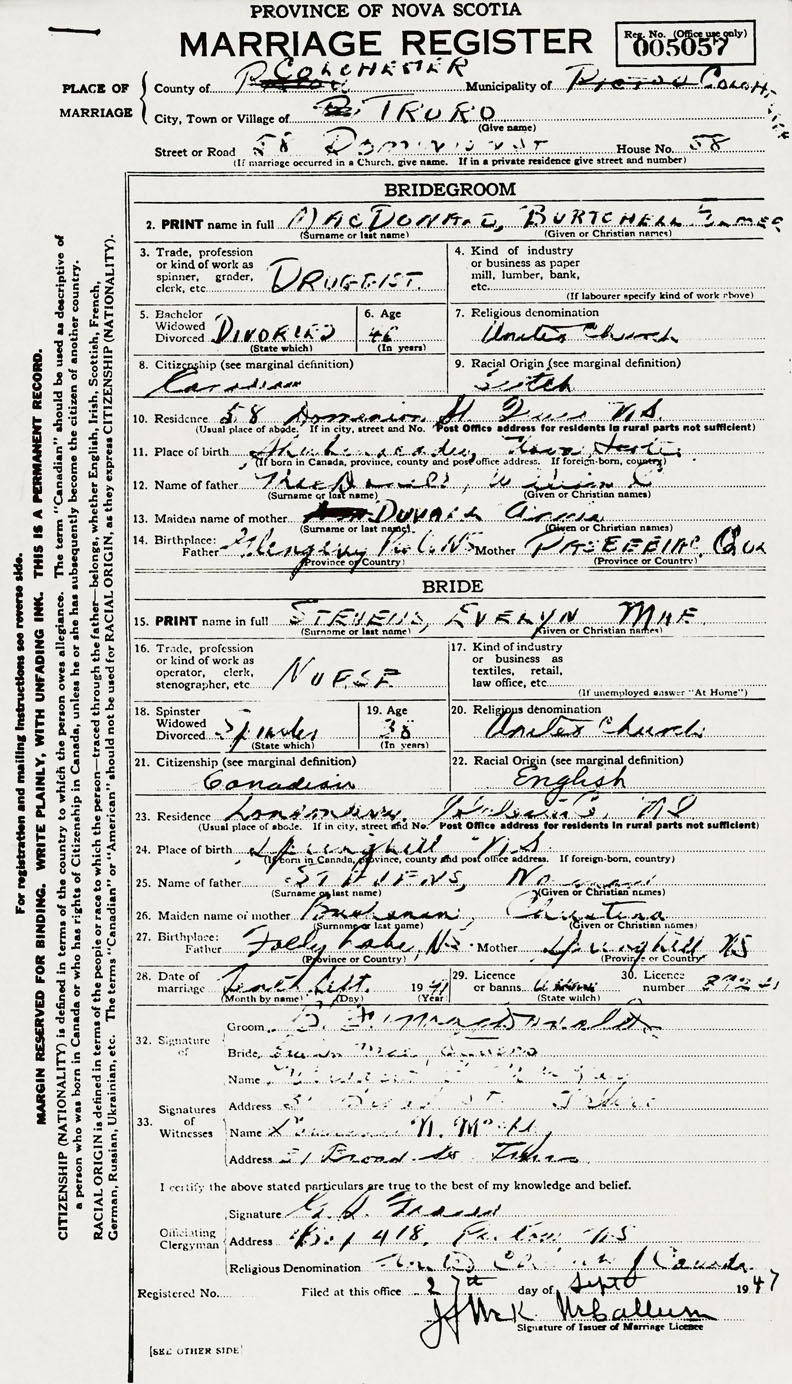 PROVINCE OF NOVA SCOTIA
MARRIAGE REGISTER
Reg. No. (Office use only)
005057
PLACE OF MARRIAGE
County of COLCHESTER Municipality of Pictou
City, Town or Village of TRURO
(Give name)
Street or Road 58 DOMINION ST House No. 58
(If marriage occurred in a Church, give name. If in a private residence give street and number)
BRIDEGROOM
2. PRINT name in full MACDONALD, BURTCHELL JAMES
(Surname or last name) (Given or Christian names)
3. Trade, profession or kind of work as spinner, grader, clerk, etc. DRUGGIST
4. Kind of industry or business as paper mill, lumber, bank, etc.
(If labourer specify kind of work above)
5. Bachelor Widowed Divorced DIVORCED
(State which)
6. Age 46
(In years)
7. Religious denomination
United Church
8. Citizenship (see marginal definition)
Canadian
9. Racial Origin (see marginal definition)
Scotch
10. Residence 58 Dominion St. N.S.
(Usual place of abode. If in city, street and No. Post Office address for residents in rural parts not sufficient)
11. Place of birth Nova Scotia
(If born in Canada, province, county and post office address. If foreign-born, country)
12. Name of father MacDonald, William
(Surname or last name) (Given or Christian names)
13. Maiden name of mother Annie
(Surname or last name) (Given or Christian names)
14. Birthplace: Father N.S. Mother PASPEBIAC, Que
(Province or Country) (Province or Country)
BRIDE
15. PRINT name in full STEVENS, EVELYN MAE
(Surname or last name) (Given or Christian names)
16. Trade, profession or kind of work as operator, clerk, stenographer, etc. NURSE
17. Kind of industry or business as textiles, retail, law office, etc.
(If unemployed answer "At Home")
18. Spinster Widowed Divorced Spinster
(State which)
19. Age 38
(In years)
20. Religious denomination
United Church
21. Citizenship (see marginal definition)
Canadian
22. Racial Origin (see marginal definition)
English
23. Residence Londonderry, N.S.
(Usual place of abode. If in city, street and No. Post Office address for residents in rural parts not sufficient)
24. Place of birth Springhill N.S.
(If born in Canada, province, county and post office address. If foreign-born, country)
25. Name of father STEVENS, Norman
(Surname or last name) (Given or Christian names)
26. Maiden name of mother Buchanan, Christena
(Surname or last name) (Given or Christian names)
27. Birthplace: Father Folly Lake, N.S. Mother Springhill NS
(Province or Country) (Province or Country)
28. Date of marriage Sept. 1947
(Month by name) (Day) (Year)
29. Licence or banns
(State which)
30. Licence number
32. Signature of
Groom MacDonald
Bride Mae Stevens
Name
Address
33. Signatures of Witnesses
Name
Address 51 Broad St
I certify the above stated particulars are true to the best of my knowledge and belief.
Officiating Clergyman
Signature
Address Box 418, Pictou NS
Religious Denomination United Church of Canada
Registered No. Filed at this office 27th day of Sept 1947
J McK McCallum
Signature of Issuer of Marriage Licence
[SEE OTHER SIDE]
For registration and mailing instructions see reverse side.
MARGIN RESERVED FOR BINDING. WRITE PLAINLY, WITH UNFADING INK. THIS IS A PERMANENT RECORD.
CITIZENSHIP (NATIONALITY) is defined in terms of the country to which the person owes allegiance. The term "Canadian" should be used as descriptive of
a person who was born in Canada or who has rights of Citizenship in Canada, unless he or she has subsequently become the citizen of another country.
RACIAL ORIGIN is defined in terms of the people or race to which the person—traced through the father—belongs, whether English, Irish, Scottish, French,
German, Russian, Ukrainian, etc. The terms "Canadian" or "American" should not be used for RACIAL ORIGIN, as they express CITIZENSHIP (NATIONALITY).